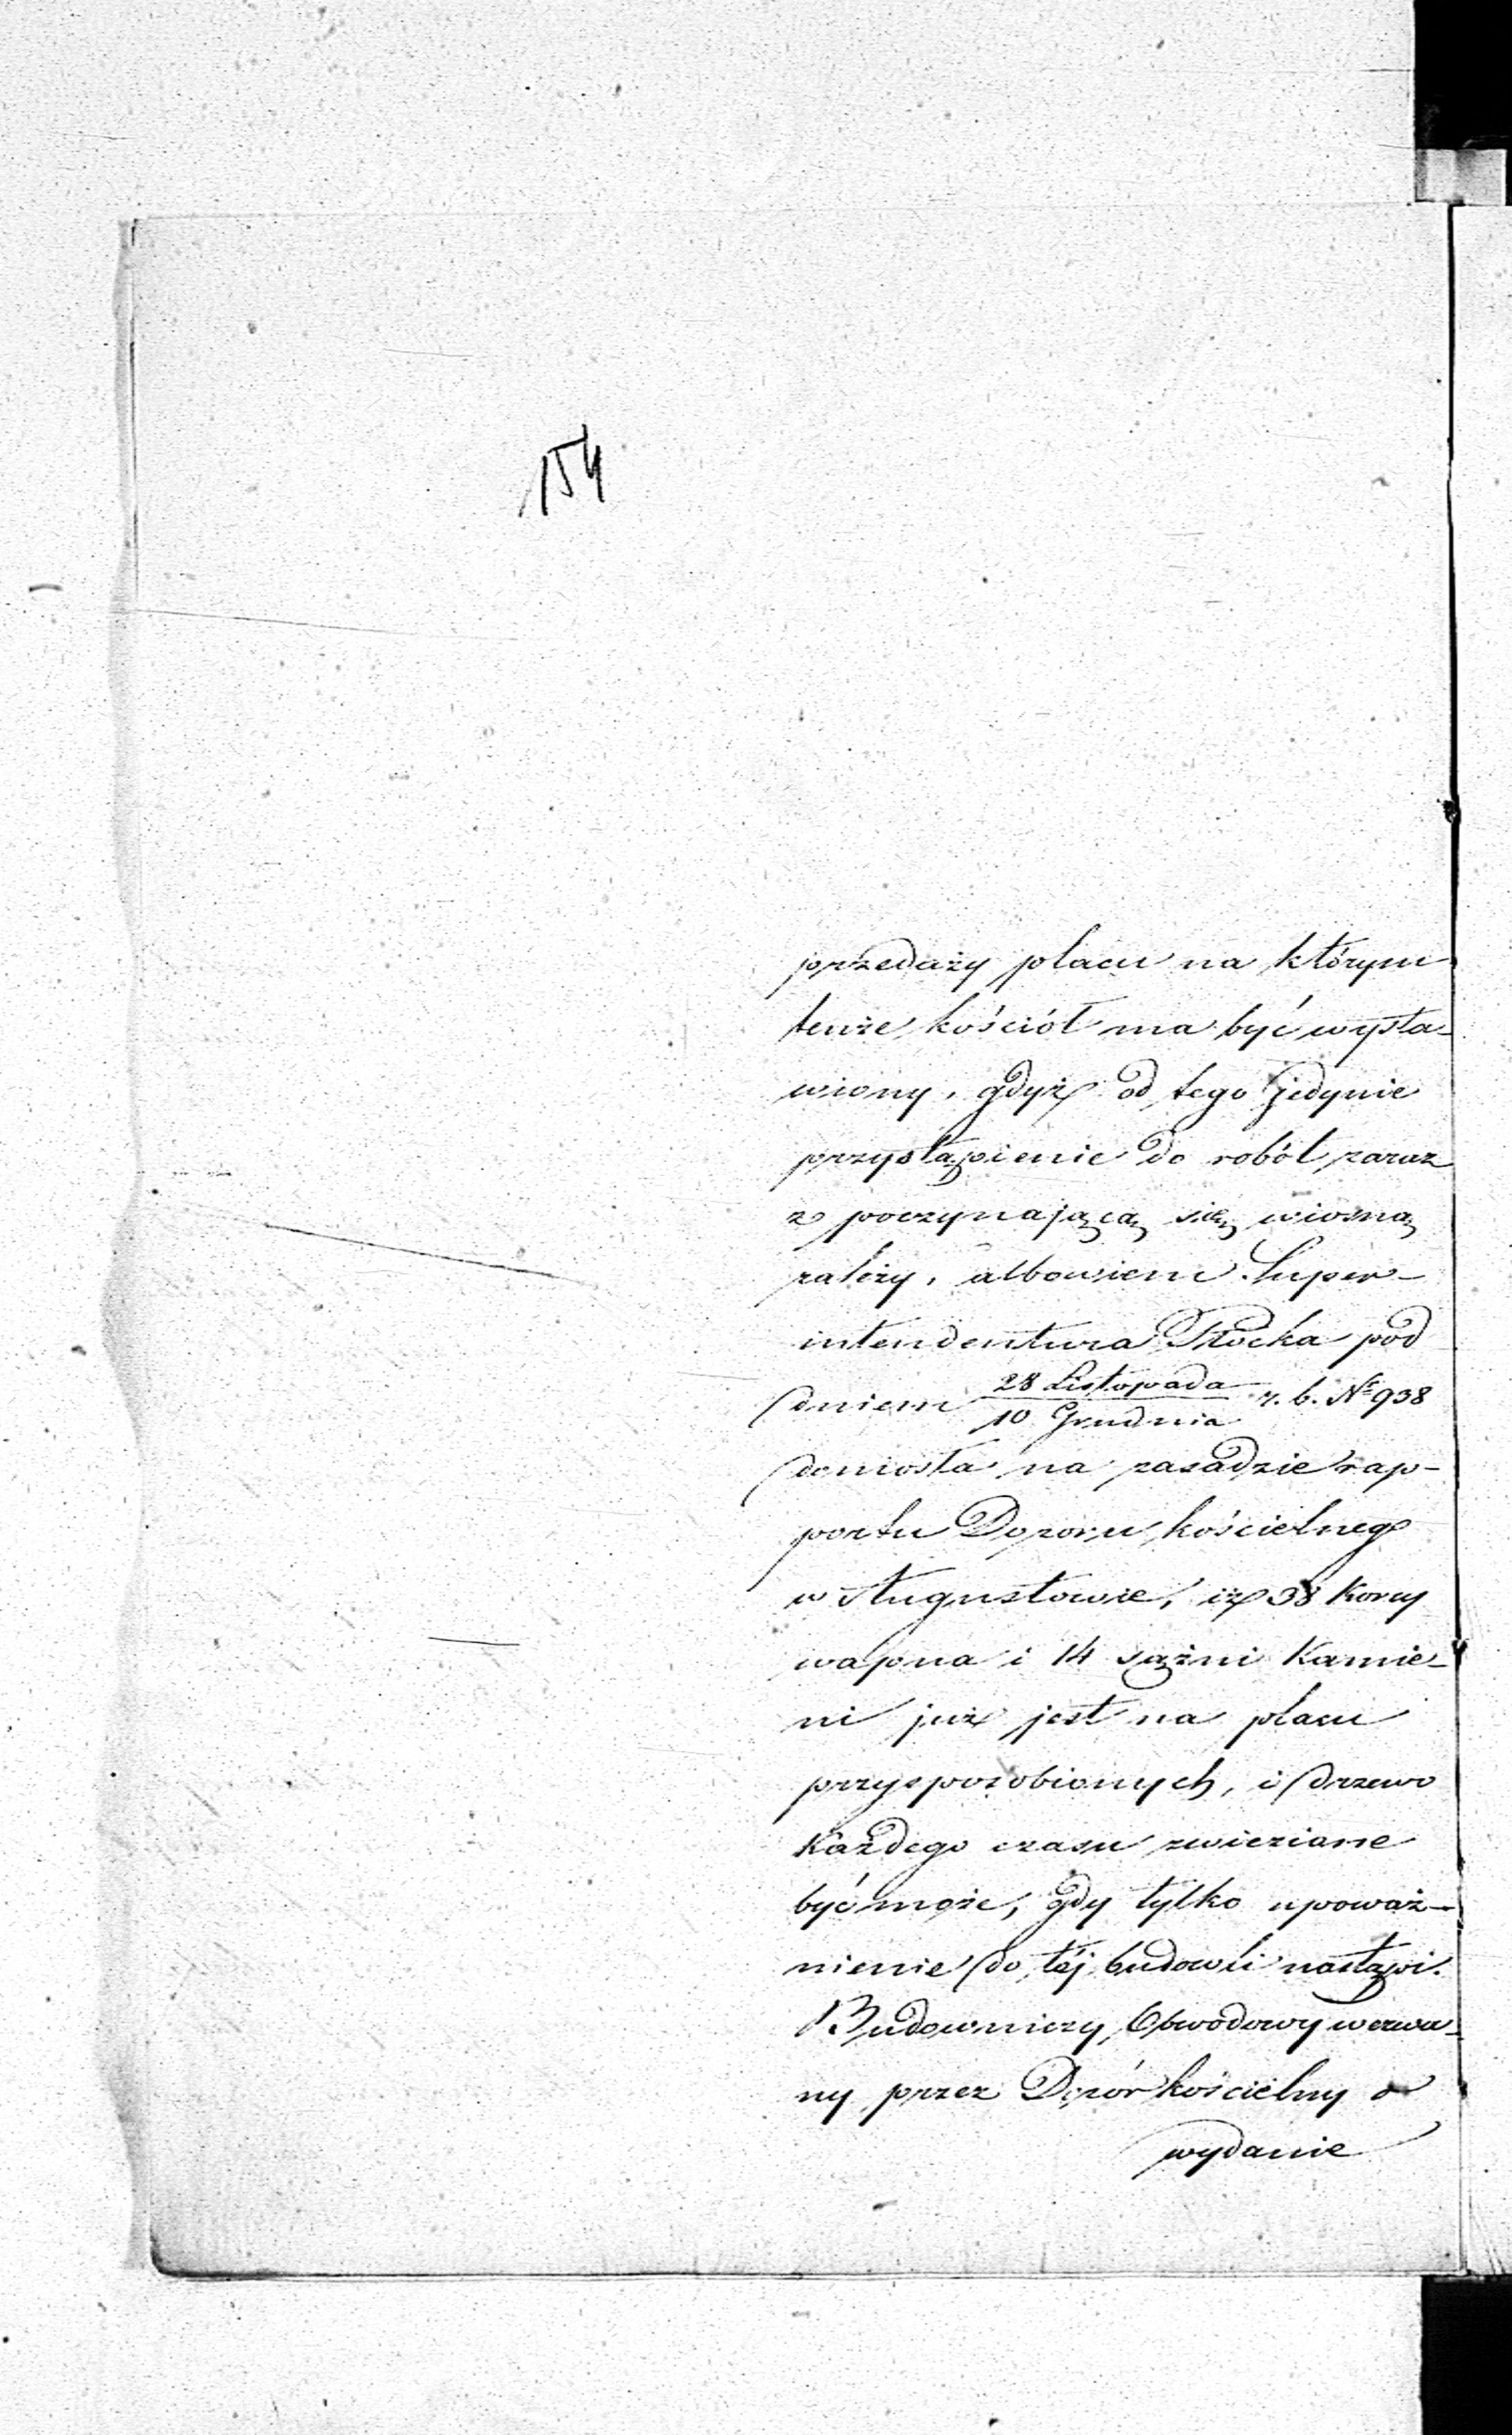 154
przedaży placu na którym
tenże kościół ma być wysta-
wiony, gdyż od tego jedynie
przystąpienie do robót zaraz
z poczynającą się wiosną
zależy, albowiem Super-
intendentura Płocka pod
dniem 28 Listopada / 10 Grudnia r. b. Nr 938
doniosła na zasadzie rap-
portu Dozoru kościelnego
w Augustowie, iż 38 Korcy
wapna i 14 sążni Kamie-
ni już jest na placu
przysposobionych, i drzewo
każdego czasu zwiezione
być może, gdy tylko upoważ-
nienie do téj budowli nastąpi.
Budowniczy Obwodowy wezwa-
ny przez Dozór kościelny o
wydanie